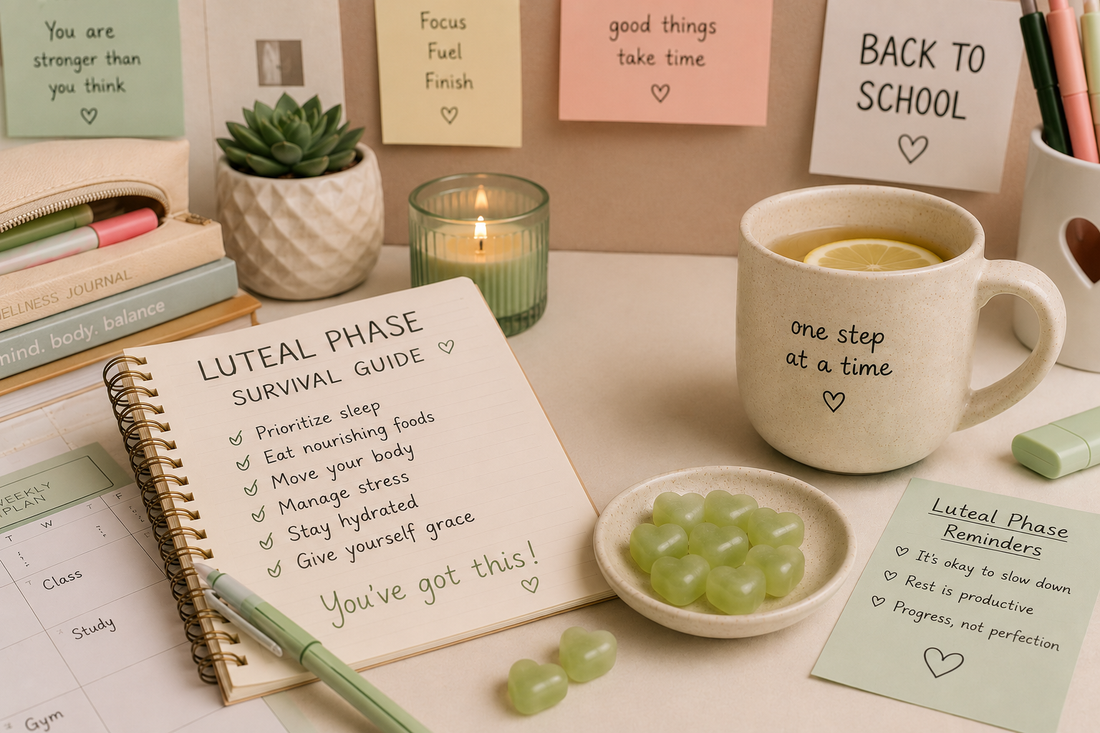 You are
stronger than
you think
Focus
Fuel
Finish
good things
take time
BACK TO
SCHOOL
WELLNESS JOURNAL
mind. body. balance
LUTEAL PHASE
SURVIVAL GUIDE
Prioritize sleep
Eat nourishing foods
Move your body
Manage stress
Stay hydrated
Give yourself grace
You've got this!
one step
at a time
WEEKLY
PLAN
T W T F
Class
Study
Gym
Luteal Phase
Reminders
It's okay to slow down
Rest is productive
Progress, not perfection